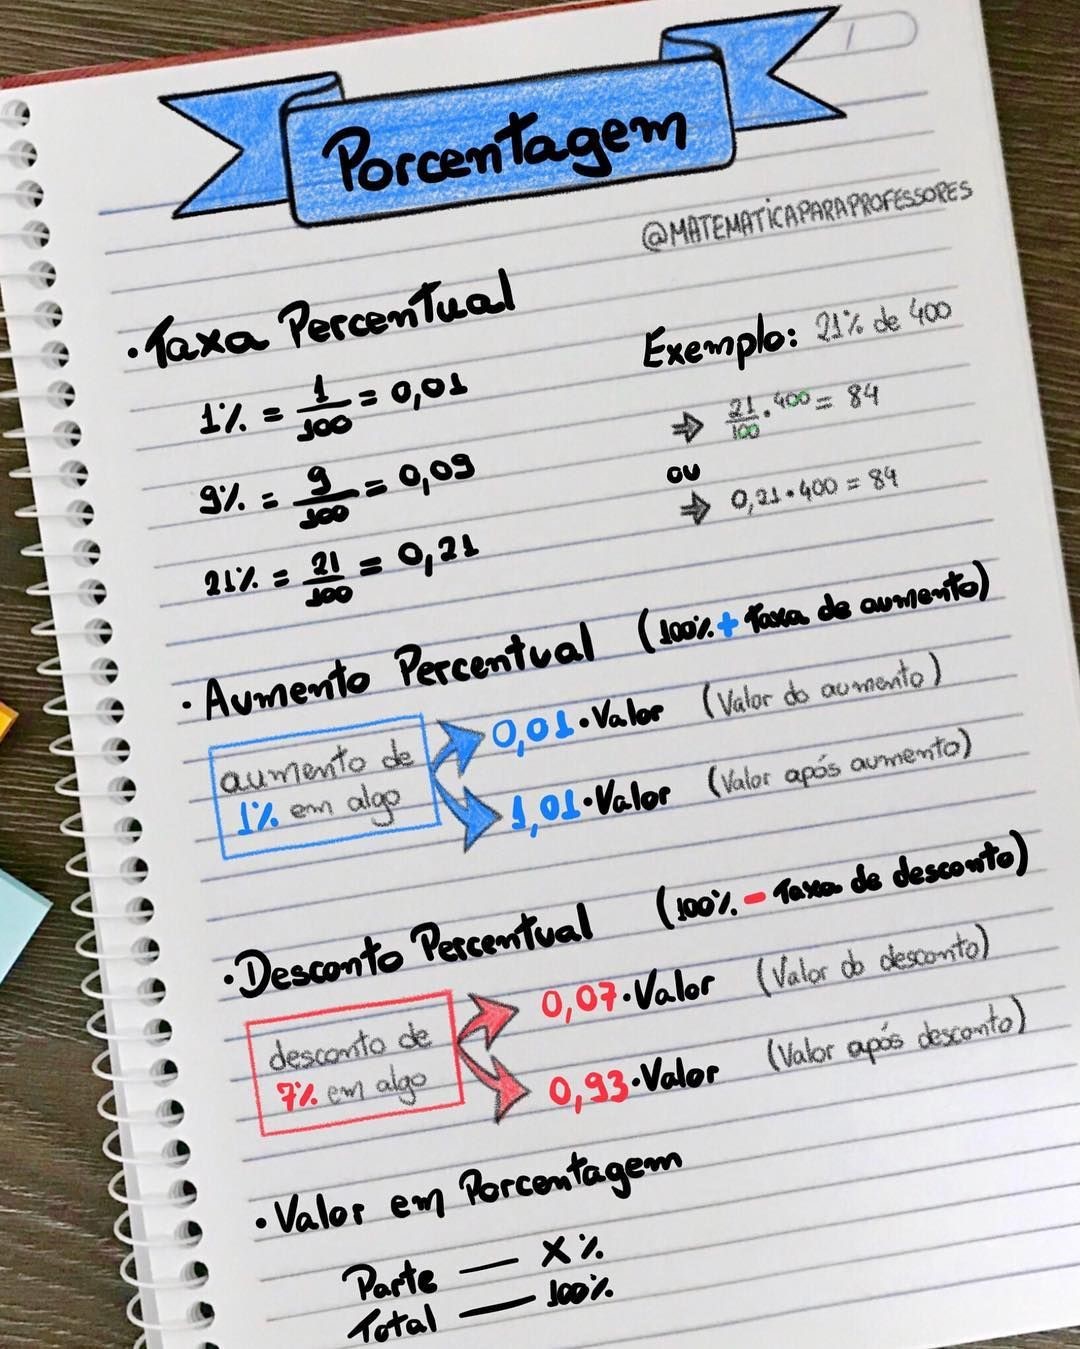 Porcentagem
@MATEMATICAPARAPROFESSORES
• Taxa Percentual
1% = 1/100 = 0,01
9% = 9/100 = 0,09
21% = 21/100 = 0,21
Exemplo: 21% de 400
⇒ 21/100 . 400 = 84
ou
⇒ 0,21 • 400 = 84
• Aumento Percentual (100% + Taxa de aumento)
aumento de
1% em algo
0,01 • Valor (Valor do aumento)
1,01 • Valor (Valor após aumento)
• Desconto Percentual (100% - Taxa de desconto)
desconto de
7% em algo
0,07 • Valor (Valor do desconto)
0,93 • Valor (Valor após desconto)
• Valor em Porcentagem
Parte — X%
Total — 100%